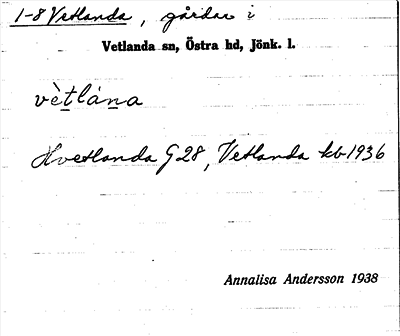 1-8 Vetlanda, gårdar i
Vetlanda sn, Östra hd, Jönk. l.
vètlána
Hvetlanda G28, Vetlanda kb 1936
Annalisa Andersson 1938